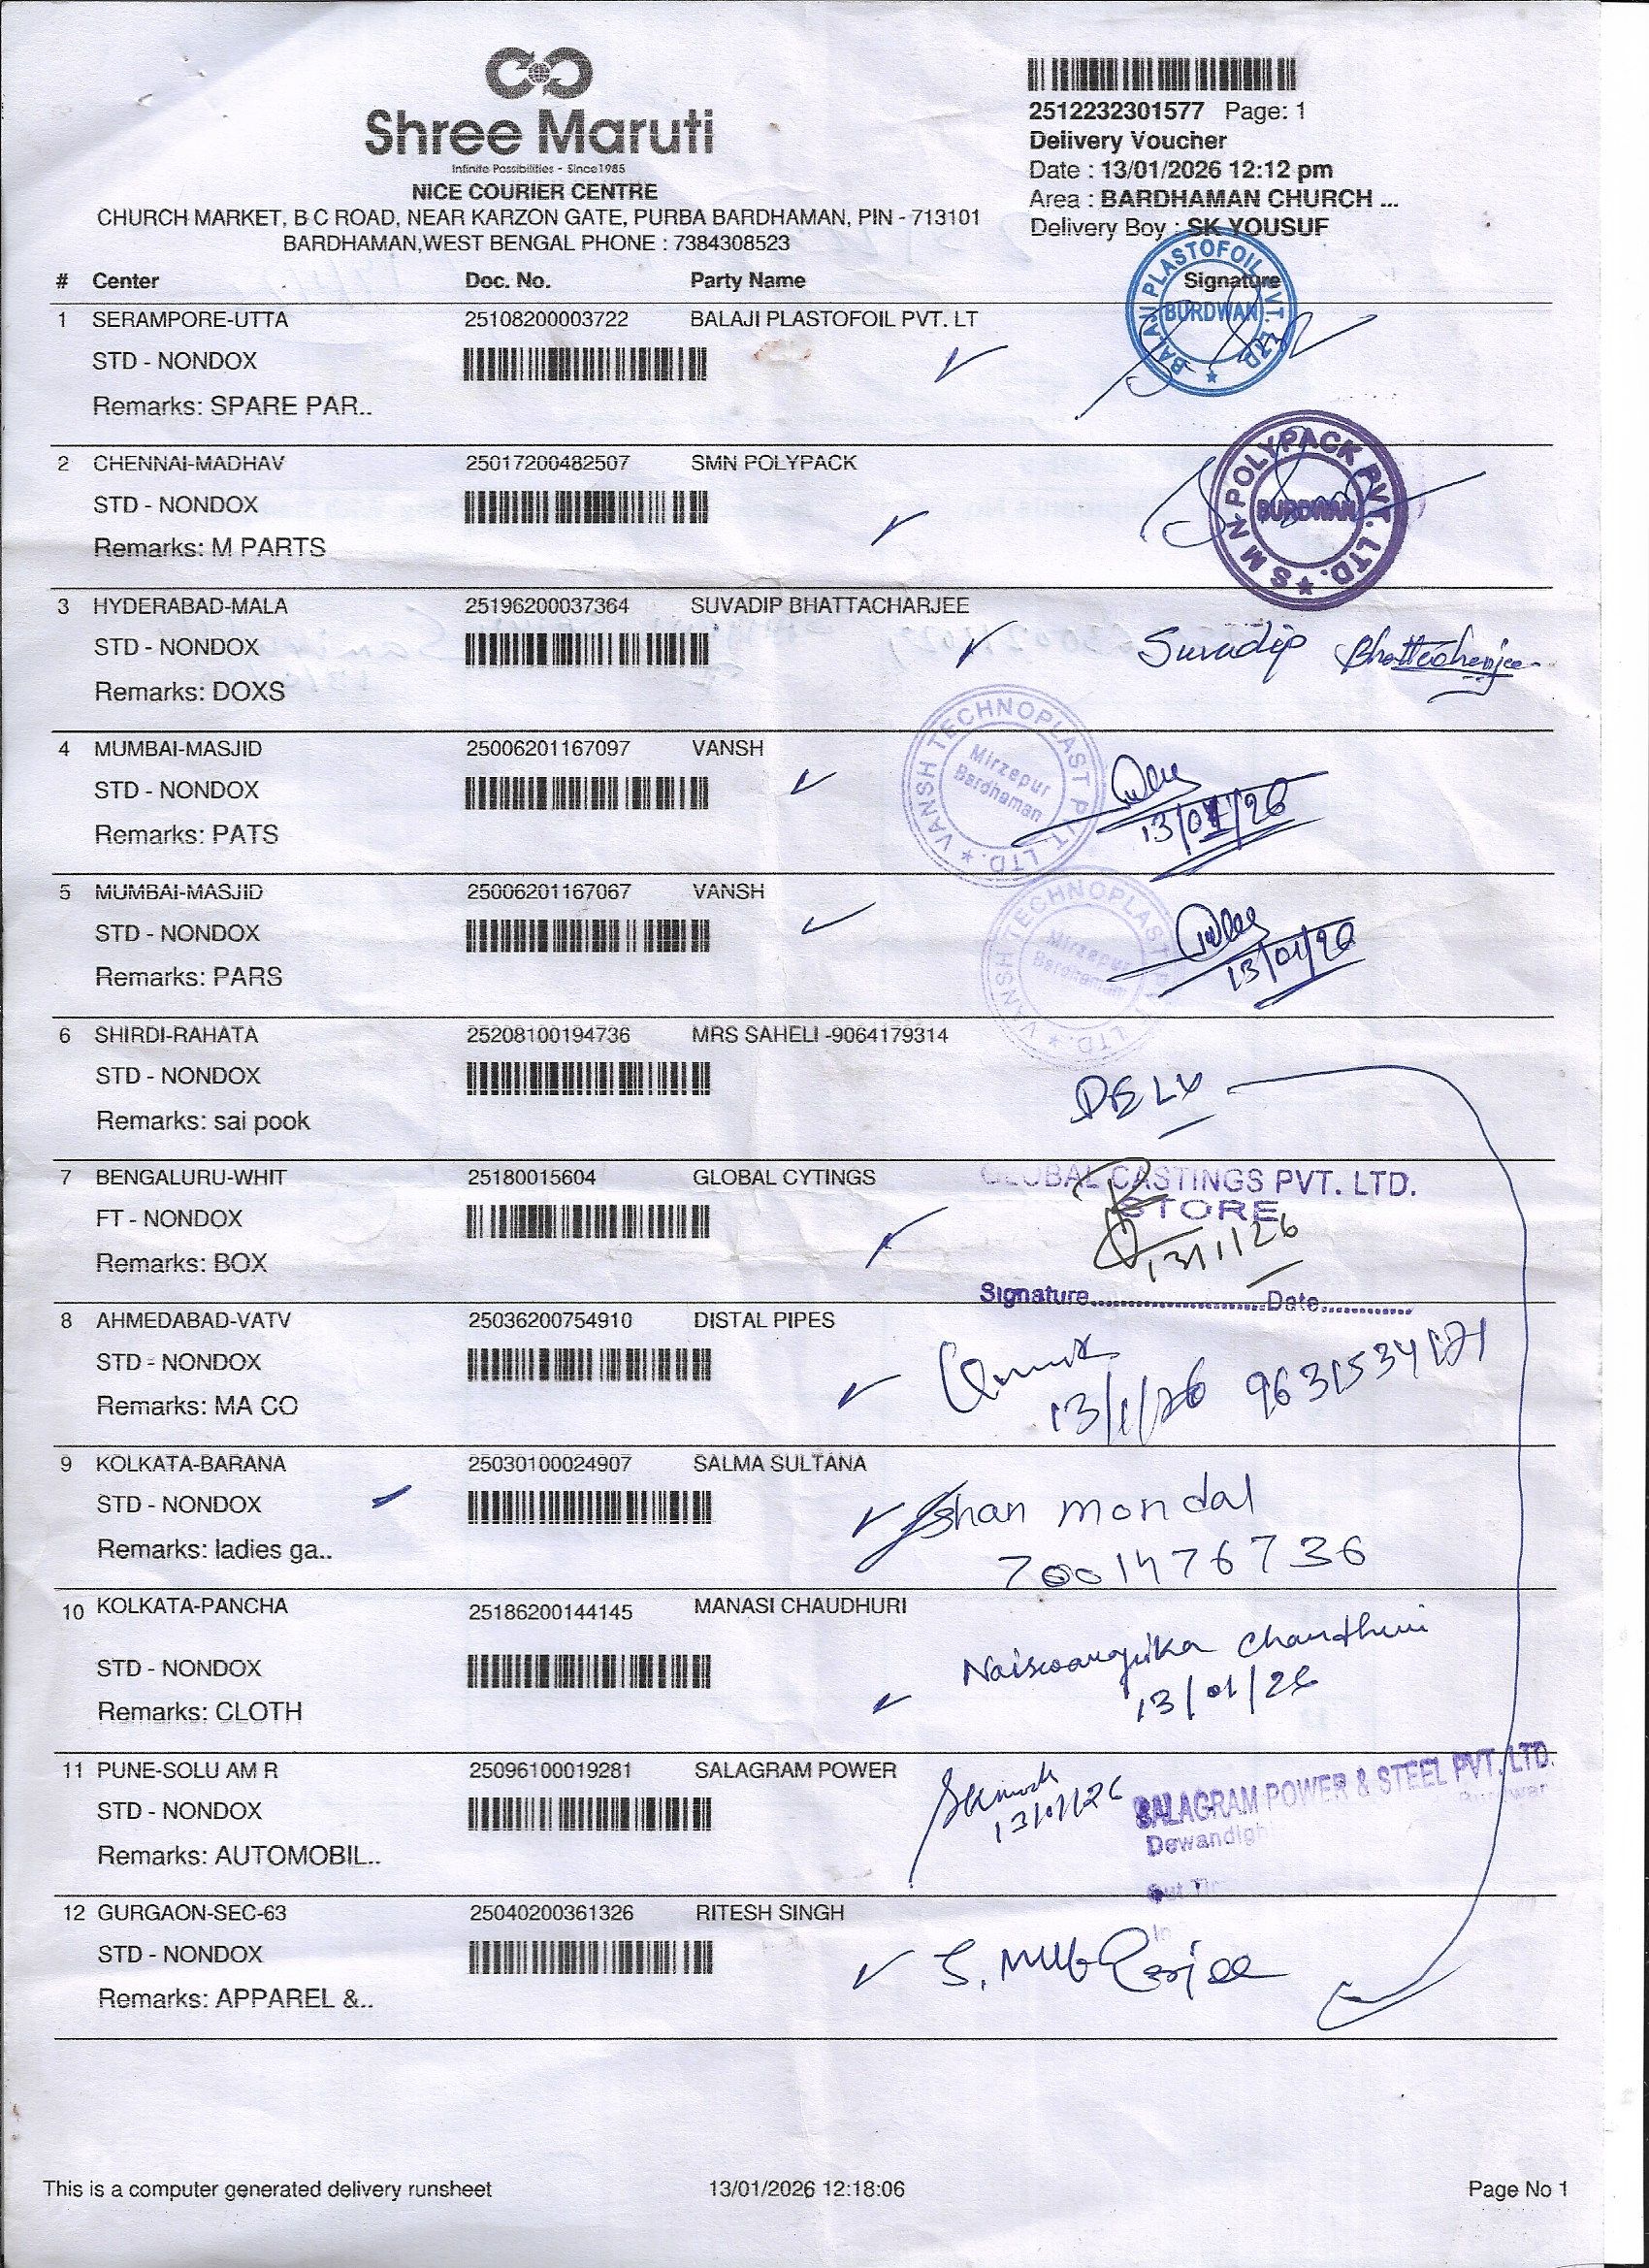 Shree Maruti
Infinite Possibilities - Since1985
NICE COURIER CENTRE
CHURCH MARKET, B C ROAD, NEAR KARZON GATE, PURBA BARDHAMAN, PIN - 713101
BARDHAMAN,WEST BENGAL PHONE : 7384308523
2512232301577 Page: 1
Delivery Voucher
Date : 13/01/2026 12:12 pm
Area : BARDHAMAN CHURCH ...
Delivery Boy : SK YOUSUF
# Center Doc. No. Party Name Signature
1 SERAMPORE-UTTA 25108200003722 BALAJI PLASTOFOIL PVT. LT
STD - NONDOX
Remarks: SPARE PAR..
BALAJI PLASTOFOIL PVT. LTD.
BURDWAN
2 CHENNAI-MADHAV 25017200482507 SMN POLYPACK
STD - NONDOX
Remarks: M PARTS
S M N POLYPACK PVT. LTD.
BURDWAN
3 HYDERABAD-MALA 25196200037364 SUVADIP BHATTACHARJEE
STD - NONDOX
Remarks: DOXS
Suvadip Bhattacharjee
4 MUMBAI-MASJID 25006201167097 VANSH
STD - NONDOX
Remarks: PATS
VANSH TECHNOPLAST PVT. LTD.
Mirzapur
Bardhaman
13/01/26
5 MUMBAI-MASJID 25006201167067 VANSH
STD - NONDOX
Remarks: PARS
VANSH TECHNOPLAST PVT. LTD.
Mirzapur
Bardhaman
13/01/26
6 SHIRDI-RAHATA 25208100194736 MRS SAHELI -9064179314
STD - NONDOX
Remarks: sai pook
DELY
7 BENGALURU-WHIT 25180015604 GLOBAL CYTINGS
FT - NONDOX
Remarks: BOX
GLOBAL CASTINGS PVT. LTD.
STORE
13/1/26
Signature..............................Date...............
8 AHMEDABAD-VATV 25036200754910 DISTAL PIPES
STD - NONDOX
Remarks: MA CO
13/1/26
9 KOLKATA-BARANA 25030100024907 SALMA SULTANA
STD - NONDOX
Remarks: ladies ga..
mondal
7001476736
10 KOLKATA-PANCHA 25186200144145 MANASI CHAUDHURI
STD - NONDOX
Remarks: CLOTH
Chaudhuri
13/01/26
11 PUNE-SOLU AM R 25096100019281 SALAGRAM POWER
STD - NONDOX
Remarks: AUTOMOBIL..
13/01/26
SALAGRAM POWER & STEEL PVT. LTD.
12 GURGAON-SEC-63 25040200361326 RITESH SINGH
STD - NONDOX
Remarks: APPAREL &..
S. Mukherjee
This is a computer generated delivery runsheet 13/01/2026 12:18:06 Page No 1